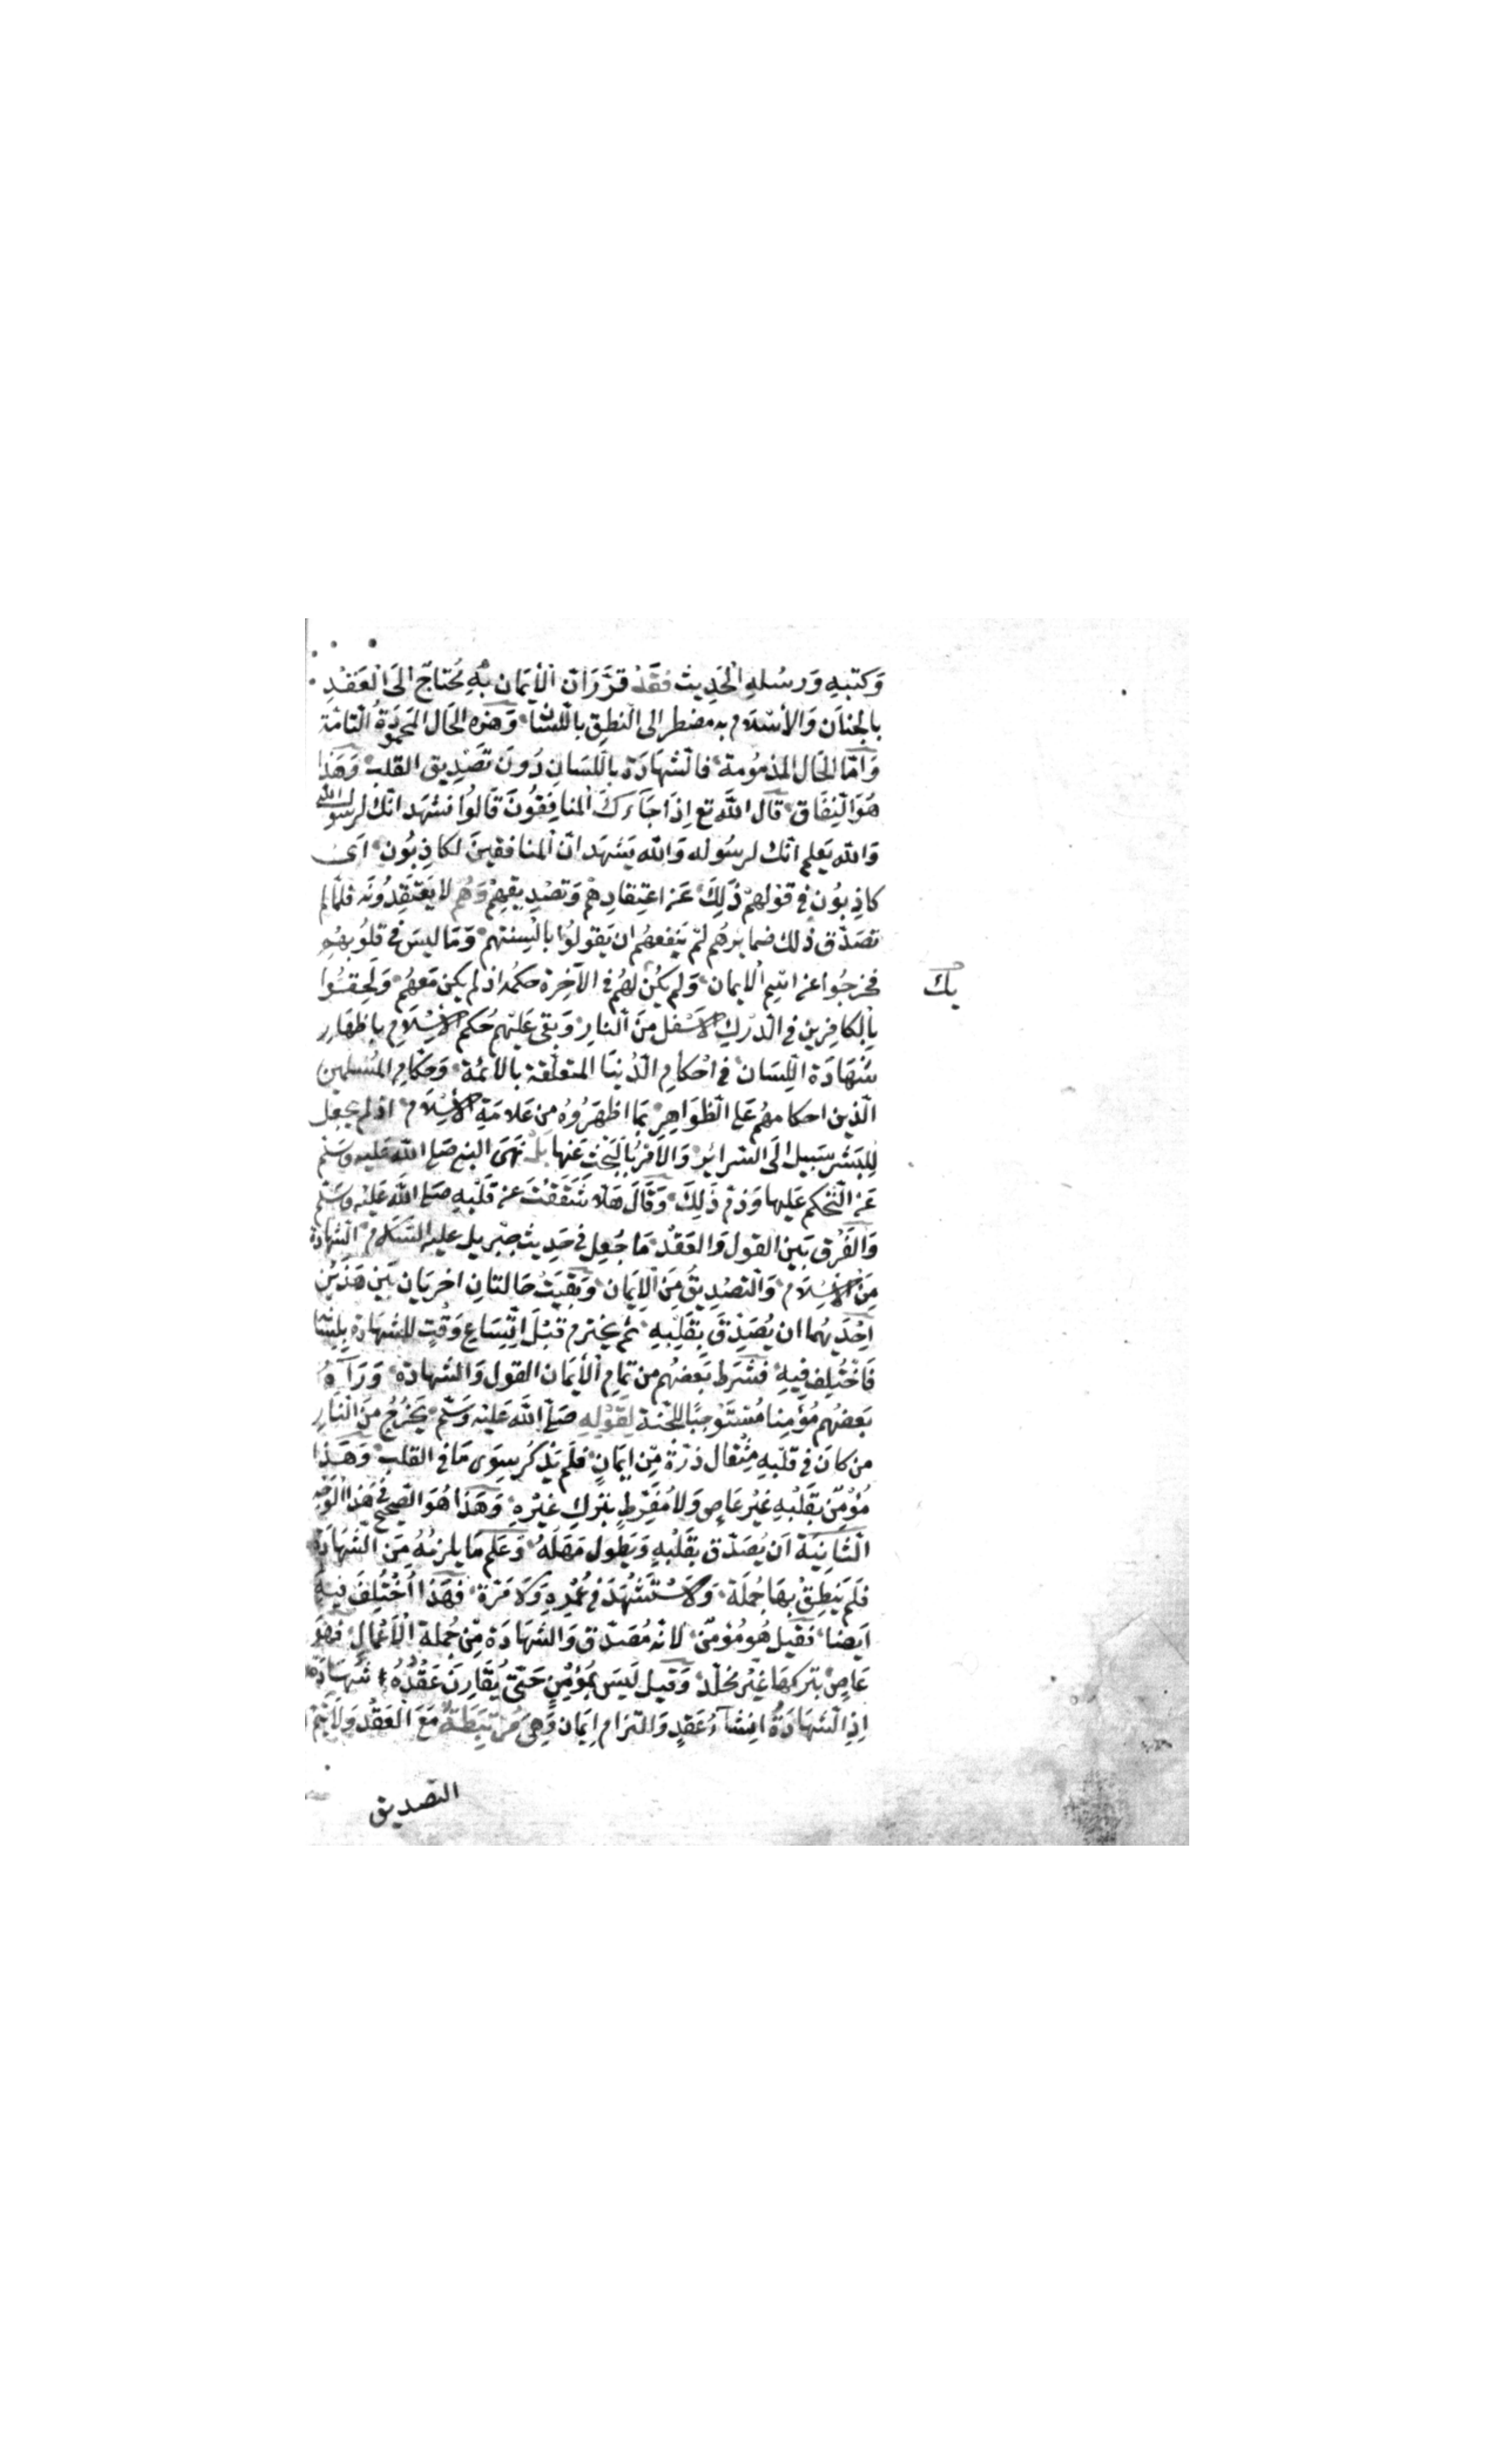 وَكتبِهِ وَرسُلهِ الحَدِيث فقَدْ قرَّرَ اَنّ الْاِيمَان بهِ مُحتَاجٌ الَى العَقْدِ
بالجنَان وَالاسْلَام به مضطر الى النطِق باللّسَان وَهٰذه الحَال المَحمُودَةُ التّامّة
وَامّا الحَال المذمُومة فالشهَادَة باللّسَانِ دُونَ تَصْدِيق القلب وَهَذا
هُوَ النِفاق قال اللّه تع اِذَا جَآءَكَ المنافِقُونَ قَالوُا نشهَد انّك لرسول الله
وَالله يَعلم انّك لرسُوله وَالله يَشهَد انّ المنافقينَ لكاذِبُون اى
كاذِبُون فى قوْلهمْ ذٰلِكَ عَن اعتِقادِهمْ وَتصْدِيقهِمْ وَهُم لا يَعْتَقِدُونَه فلمّا لم
تصَدّق ذٰلك ضمايرهُم لمْ يَنفعهُم ان يَقولوُا بالْسِنتهم مَا ليسَ فى قلوُبهُم
فخرجُوا عن اسْمِ الايمان وَلم يكُن لهُم فى الآخِرة حكمُه اذ لم يكن مَعهُم وَلحِقُوا
بِالكافِرين فى الدّركِ الاَسْفل منَ النارِ وَبقى عَليْهم حُكم الاِسْلَامِ باظهَارِ
شهَادَة اللِّسَان فى احْكامِ الدّنيَا المتعلّقة بالائمّة وَحكامِ المُسْلمين
الّذين احكامهُم عَلى الظّوَاهِر بمَا اظهَرُوهُ من عَلامَةِ الاِسْلَام اذ لم يجعَل
لِلبَشَر سَبيل الَى السّرائرِ وَلا اُمِرُوا بالبَحْث عَنها بَلْ نهَى النبى صَلى الله عَليه وسَلّم
عَن التّحكم عَليها وَذمّ ذٰلِكَ وَقَالَ هَلّا شَقَقْتَ عَن قلْبهِ صَلى الله عَليْه وسَلّم
وَالفَرْق بَين القول وَالعَقْد مَا جُعِل فى حَدِيث جبْريل عليه السَّلام الشهَادة
مِنَ الاِسْلَام وَالتصْدِيق مِنَ الاِيمَان وَبَقيَتْ حَالتانِ اخريَان بَين هَذَيْن
اِحْدَيهُما ان يُصَدِّقَ بقَلبِهِ ثم يخترم قبْلَ اتِّسَاعِ وَقتٍ للشهَادة بلِسَانه
فَاخْتُلِف فيهِ فشرَط بَعضهُم من تمامِ الْاِيمَان القول وَالشهادة وَرَآهُ
بَعضهُم مُؤمِنا مُسْتَوْجبًا للجَنة لقَوْلهِ صَلى الله عَليْه وَسَلّم يَخرُجُ منَ النّارِ
من كانَ فى قلبهِ مِثقال ذرّة مِّن ايمَانٍ فلم يَذكُر سِوَى مَا فى القلبِ وَهَذا
مُؤمِنٌ بقَلْبهِ غيْر عَاصٍ وَلا مُفَرِّطٍ بتَركِ غيْرِه وَهَذَا هُوَ الصّحيح فى هَذا الوَجْه
الثّانِيَة اَن يُصَدّق بقَلْبهِ وَيَطول مَهَلهُ وَعَلم مَا يلزمُهُ مِنَ الشهَادَة
فلم يَنطِقْ بهَا جُمْلَة وَلا اسْتَشْهَدَ فى عُمْرهِ وَلا مَرّة فهَذا اخْتُلِفَ فيهِ
ايضا فقيل هُو مُؤمِنٌ لانه مُصَدّق وَالشهَادَة مِن جُملة الاَعْمَالِ فهوَ
عَاصٍ بتَركهَا غيْر مخلّدٍ وَقيل لَيسَ بمُؤمِنٍ حَتّى يُقَارِنَ عَقْدُهُ شهَادَة
اِذِ الشهَادَةُ اِنشآءُ عَقدٍ وَالتزَام اِيمَان وَهِىَ مُرْتبَطَةٌ مَعَ العَقْد وَلَا يَتمّ
التّصديق